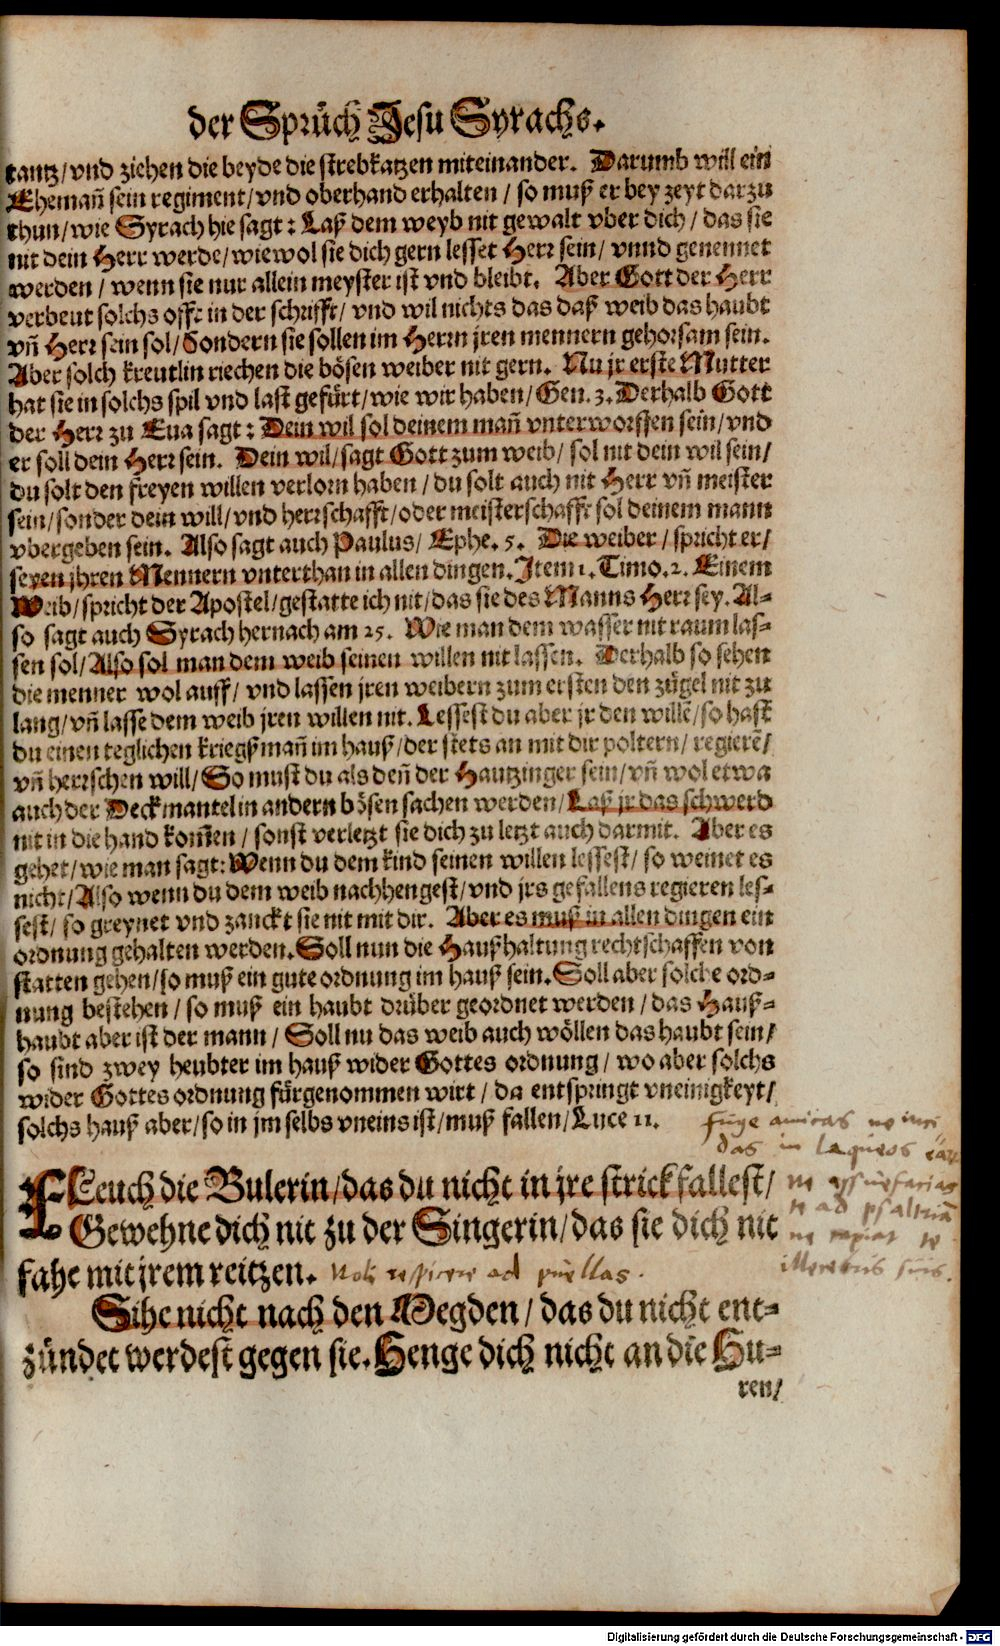 der Sprüch Jesu Syrachs.
tantz/vnd ziehen die beyde die strebkatzen miteinander. Darumb will ein
Ehemañ sein regiment/vnd oberhand erhalten / so muß er bey zeyt darzu
thun/wie Syrach hie sagt: Laß dem weyb nit gewalt vber dich/ das sie
nit dein Herr werde/wiewol sie dich gern lesset Herr sein/ vnnd genennet
werden / wenn sie nur allein meyster ist vnd bleibt. Aber Gott der Herr
verbeut solchs offt in der schrifft/ vnd wil nichts das daß weib das haubt
vñ Herr sein sol/ Sondern sie sollen im Herrn jren mennern gehorsam sein.
Aber solch kreutlin riechen die bösen weiber nit gern. Nu jr erste Mutter
hat sie in solchs spil vnd last gefürt/wie wir haben/Gen. 3. Derhalb Gott
der Herr zu Eua sagt: Dein wil sol deinem mañ vnterworffen sein/vnd
er soll dein Herr sein. Dein wil/sagt Gott zum weib/ sol nit dein wil sein/
du solt den freyen willen verlorn haben / du solt auch nit Herr vñ meister
sein/sonder dein will/vnd herrschafft/oder meisterschafft sol deinem mann
vbergeben sein. Also sagt auch Paulus/ Ephe. 5. Die weiber / spricht er/
seyen jhren Mennern vnterthan in allen dingen. Item 1. Timo. 2. Einem
Weib/spricht der Apostel/gestatte ich nit/das sie des Manns Herr sey. Al-
so sagt auch Syrach hernach am 25. Wie man dem wasser nit raum las-
sen sol/Also sol man dem weib seinen willen nit lassen. Derhalb so sehen
die menner wol auff/ vnd lassen jren weibern zum ersten den zügel nit zu
lang/vñ lasse dem weib jren willen nit. Lessest du aber jr den willē/so hast
du einen teglichen kriegßmañ im hauß/der stets an mit dir poltern/ regierē/
vñ herrschen will/ So must du als deñ der Hautzinger sein/vñ wol etwa
auch der Deckmantel in andern bösen sachen werden/Laß jr das schwerd
nit in die hand kom̃en / sonst verletzt sie dich zu letzt auch darmit. Aber es
gehet/wie man sagt: Wenn du dem kind seinen willen lessest/ so weinet es
nicht/Also wenn du dem weib nachhengest/vnd jrs gefallens regieren les-
sest/ so greynet vnd zanckt sie nit mit dir. Aber es muß in allen dingen ein
ordnung gehalten werden. Soll nun die Haußhaltung rechtschaffen von
statten gehen/so muß ein gute ordnung im hauß sein. Soll aber solche ord-
nung bestehen / so muß ein haubt drüber geordnet werden / das Hauß-
haubt aber ist der mann / Soll nu das weib auch wöllen das haubt sein/
so sind zwey heubter im hauß wider Gottes ordnung / wo aber solchs
wider Gottes ordnung fürgenommen wirt / da entspringt vneinigkeyt/
solchs hauß aber/so in jm selbs vneins ist/muß fallen/Luce 11.
fuge amicas ne inci
das in laqueos eār
FLeuch die Bulerin/das du nicht in jre strick fallest/
Gewehne dich nit zu der Singerin/das sie dich nit
fahe mit jrem reitzen.
ne assuefacias
te ad psaltriā
ne capiat te
illecebris suis.
Noli respicere ad puellas.
Sihe nicht nach den Megden/ das du nicht ent-
zündet werdest gegen sie. Henge dich nicht an die Hu-
ren/
Digitalisierung gefördert durch die Deutsche Forschungsgemeinschaft - DFG